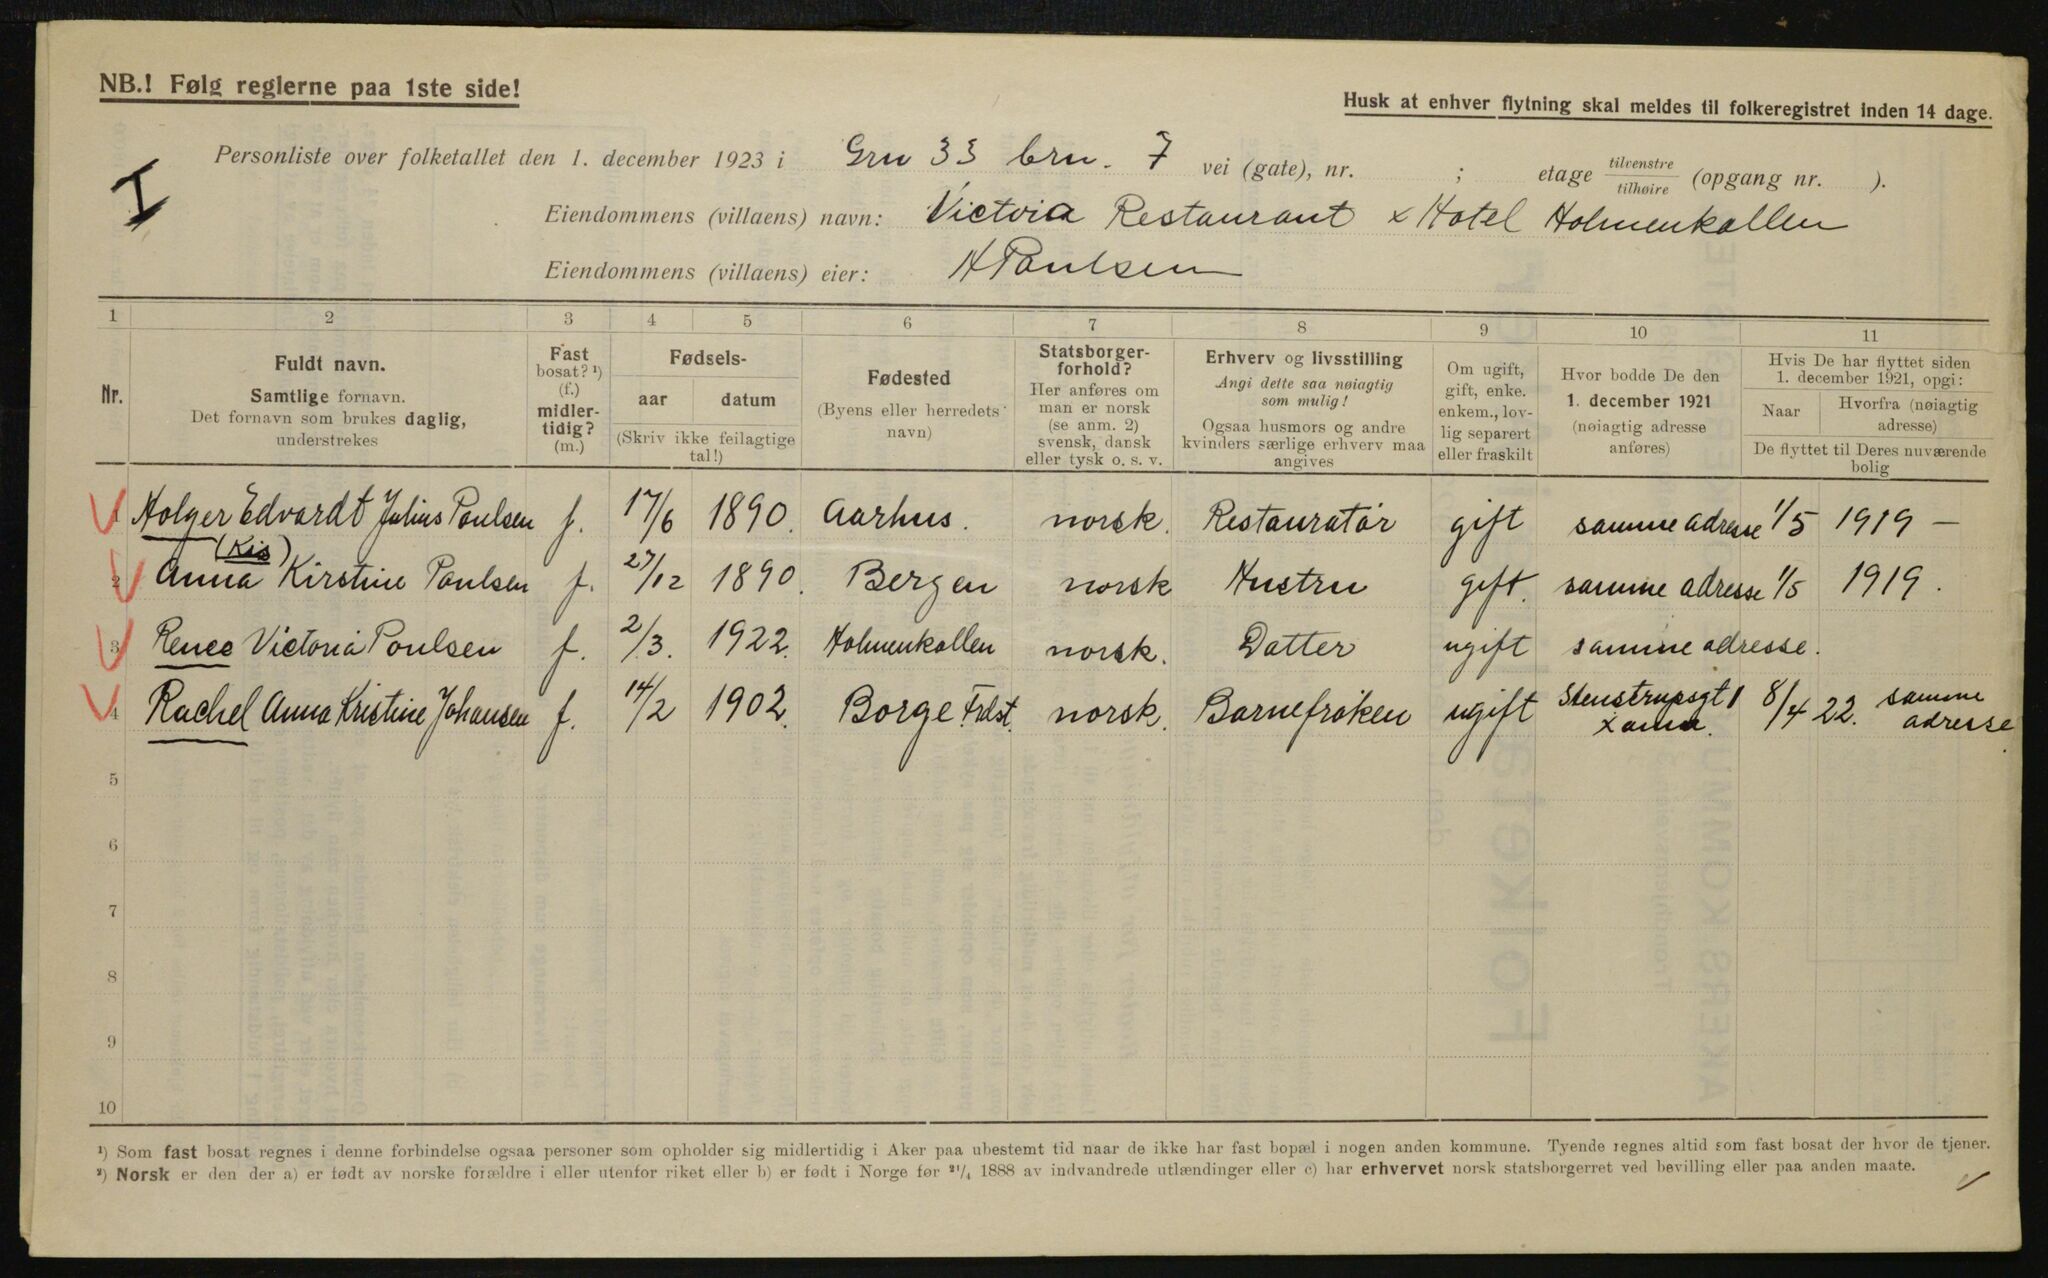 NB.! Følg reglerne paa 1ste side!
Husk at enhver flytning skal meldes til folkeregistret inden 14 dage.
I
Personliste over folketallet den 1. december 1923 i Grn 33 brn. 7 vei (gate), nr. ; etage tilvenstre tilhøire (opgang nr. ).
Eiendommens (villaens) navn: Victoria Restaurant x Hotel Holmenkollen
Eiendommens (villaens) eier: H Poulsen
1 2 3 4 5 6 7 8 9 10 11
Nr.
Fuldt navn.
Samtlige fornavn.
Det fornavn som brukes daglig,
understrekes
Fast
bosat? ¹)
(f.)
midler-
tidig?
(m.)
Fødsels-
aar datum
(Skriv ikke feilagtige
tal!)
Fødested
(Byens eller herredets
navn)
Statsborger-
forhold?
Her anføres om
man er norsk
(se anm. 2)
svensk, dansk
eller tysk o. s. v.
Erhverv og livsstilling
Angi dette saa nøiagtig
som mulig!
Ogsaa husmors og andre
kvinders særlige erhverv maa
angives
Om ugift,
gift, enke.
enkem., lov-
lig separert
eller fraskilt
Hvor bodde De den
1. december 1921
(nøiagtig adresse
anføres)
Hvis De har flyttet siden
1. december 1921, opgi:
Naar Hvorfra (nøiagtig
adresse)
De flyttet til Deres nuværende
bolig
1 Holger Edvardt Julius Poulsen f. 17/6 1890. Aarhus. norsk. Restauratør gift samme adresse 1/5 1919 —
(Kis)
2 Anna Kirstine Poulsen f. 27/12 1890. Bergen norsk Hustru gift. samme adresse 1/5 1919.
3 Renee Victoria Poulsen f. 2/3. 1922. Holmenkollen norsk. Datter ugift samme adresse.
4 Rachel Anna Kristine Johansen f. 14/2 1902. Borge Frdst. norsk. Barnefrøken ugift Stenstrupsgt 1 8/4 22. samme
adresse
5
6
7
8
9
10
¹) Som fast bosat regnes i denne forbindelse ogsaa personer som opholder sig midlertidig i Aker paa ubestemt tid naar de ikke har fast bopæl i nogen anden kommune. Tyende regnes altid som fast bosat der hvor de tjener.
²) Norsk er den der a) er født av norske forældre i eller utenfor riket eller b) er født i Norge før ²¹/₄ 1888 av indvandrede utlændinger eller c) har erhvervet norsk statsborgerret ved bevilling eller paa anden maate.